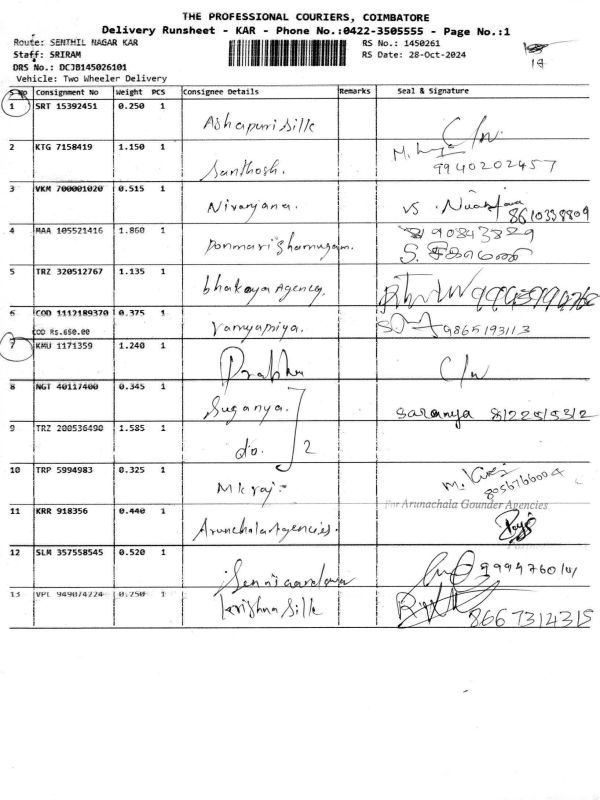 THE PROFESSIONAL COURIERS, COIMBATORE
Delivery Runsheet - KAR - Phone No.:0422-3505555 - Page No.:1
Route: SENTHIL NAGAR KAR RS No.: 1450261
Staff: SRIRAM RS Date: 28-Oct-2024
DRS No.: DCJB145026101
Vehicle: Two Wheeler Delivery
S No Consignment No Weight PCS Consignee Details Remarks Seal & Signature
1 SRT 15392451 0.250 1 Ashapuri silk C/n
2 KTG 7158419 1.150 1 Santhosh. 9940202457
3 VKM 700001020 0.515 1 Niranjana. VS. 8610338809
4 MAA 105521416 1.860 1
5 TRZ 320512767 1.135 1 bhakaya Agency.
6 COD 1112189370 0.375 1 9865193113
COD Rs.650.00
7 KMU 1171359 1.240 1 Prabhu C/n
8 NGT 40117400 0.345 1 Suganya. saranya
9 TRZ 200536490 1.585 1 do. 2
10 TRP 5994983 0.325 1 Mkraj 8056766004
11 KRR 918356 0.440 1 Arunchala Agencies. For Arunachala Gounder Agencies
12 SLM 357558545 0.520 1
13 VPL 949074224 0.750 1 krishna silk 8667314315